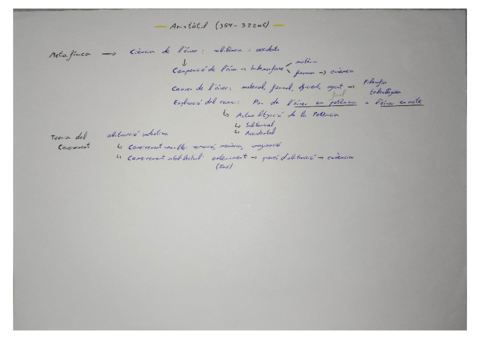 — Aristòtil (384-322aC) —
Metafísica → Ciència de l'ésser: substància i accidents
↓
Composició de l'ésser → hilemorfisme < matèria
forma → essència
Causes de l'ésser: material, formal, eficient, → Filosofia teleològica
Explicació del canvi: Pas de l'ésser en potència a l'ésser en acte
↳ Actualització de la Potència
↳ Substancial
↳ Accidental
Teoria del Coneixement
↳ Coneixement sensible
↳ Coneixement intel·lectual: enteniment → procés d'abstracció → essència